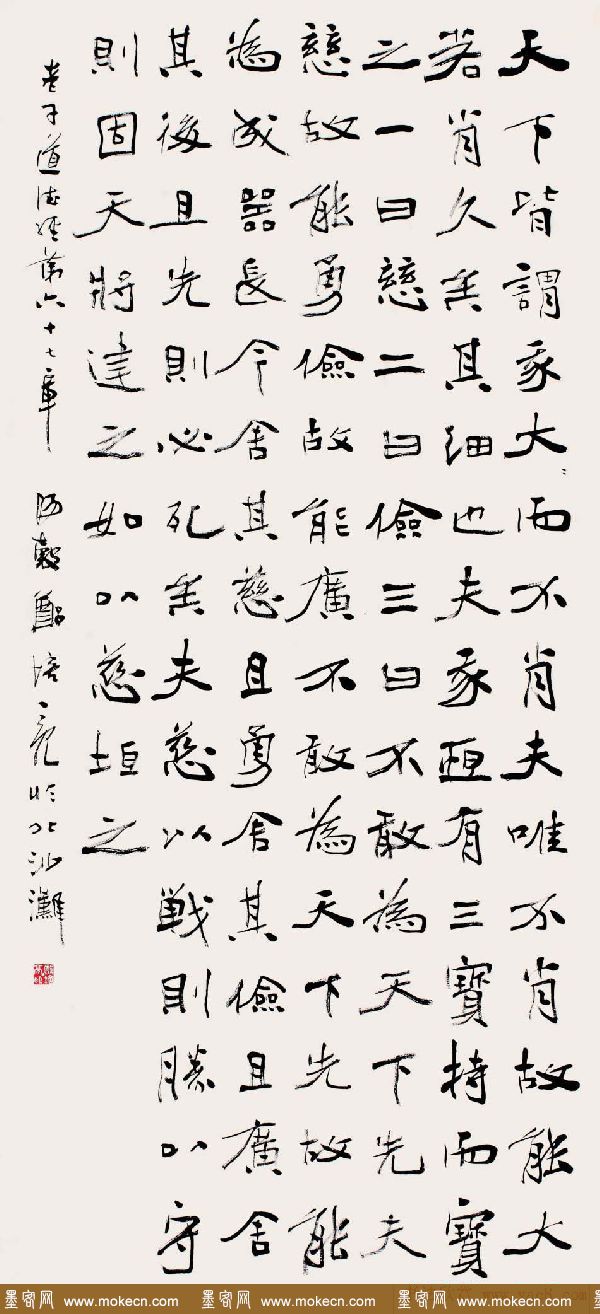 天下皆謂我大〻而不肖夫唯不肖故能大
若肖久矣其細也夫我恆有三寶持而寶
之一曰慈二曰儉三曰不敢為天下先夫
慈故能勇儉故能廣不敢為天下先故能
為成器長今舍其慈且勇舍其儉且廣舍
其後且先則必死矣夫慈以戰則勝以守
則固天將建之如以慈垣之
老子道德經第六十七章 培亮於北沙灘
墨客网 www.mokecn.com 墨客网 www.mokecn.com 墨客网 www.mokecn.com